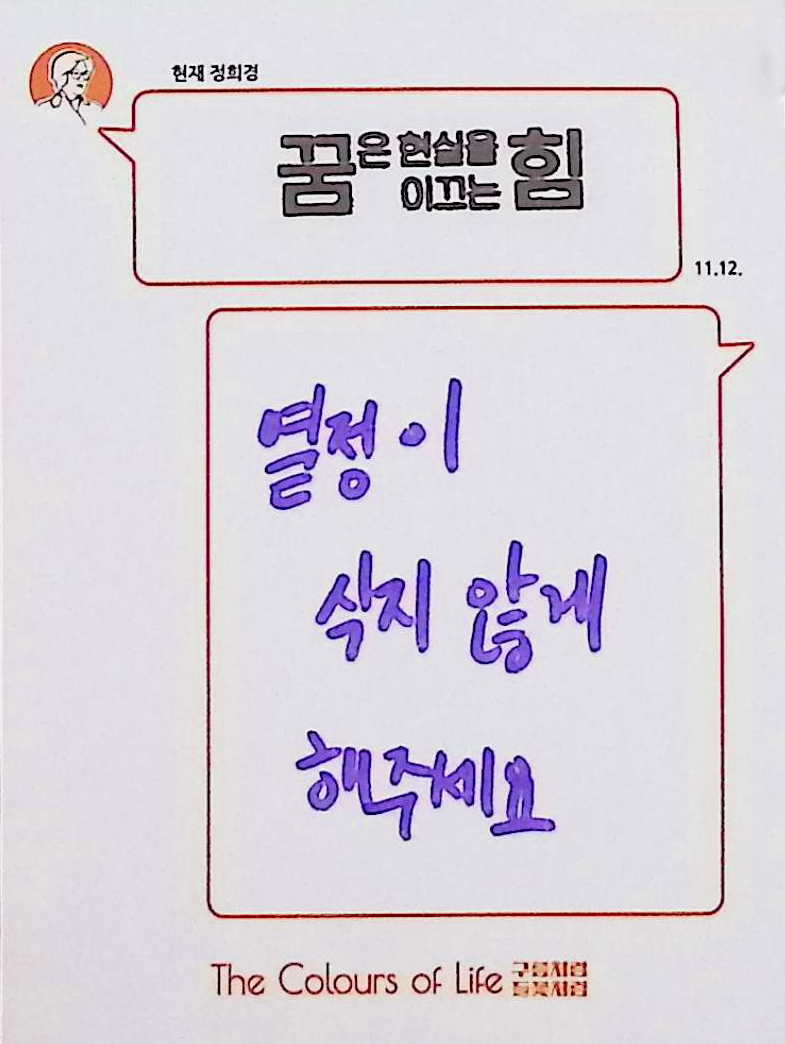 현재 정희경
꿈은 현실을
이끄는 힘
11.12.
열정이
식지 않게
해주세요
The Colours of Life 구름처럼
들꽃처럼